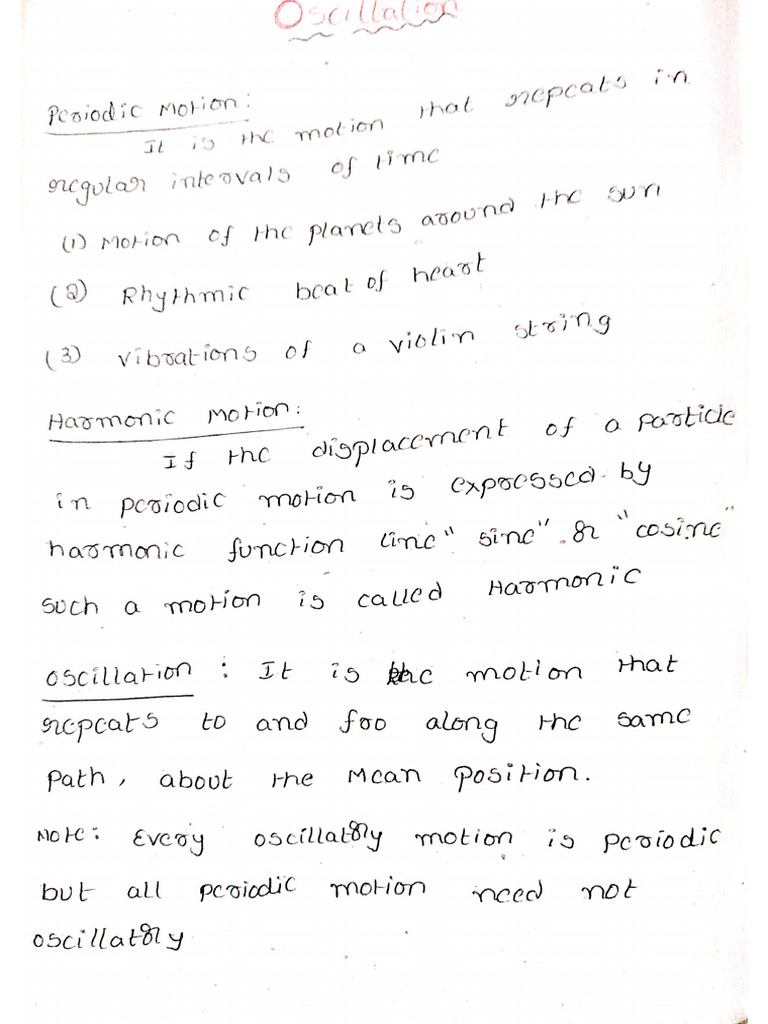 Oscillation
Periodic Motion:
It is the motion that repeats in
regular intervals of time
(1) Motion of the planets around the sun
(2) Rhythmic beat of heart
(3) vibrations of a violin string
Harmonic Motion:
If the displacement of a particle
in periodic motion is expressed by
harmonic function line "sine" or "cosine"
such a motion is called Harmonic
Oscillation : It is the motion that
repeats to and fro along the same
path, about the Mean position.
Note: Every oscillatory motion is periodic
but all periodic motion need not
oscillatory